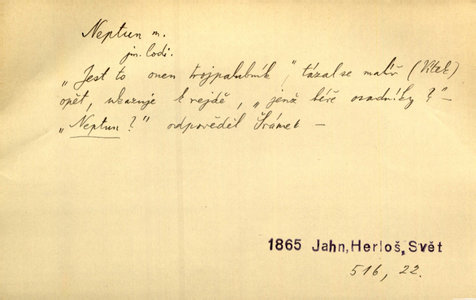 Neptun m.
jm. lodi.
„Jest to onen trojpalubník", tázal se malíř (Vítek)
opět, ukazuje k rejdě, „jenž béře osadníky?" –
„Neptun?" odpověděl Šrámek –
1865 Jahn, Herloš, Svět
516, 22.